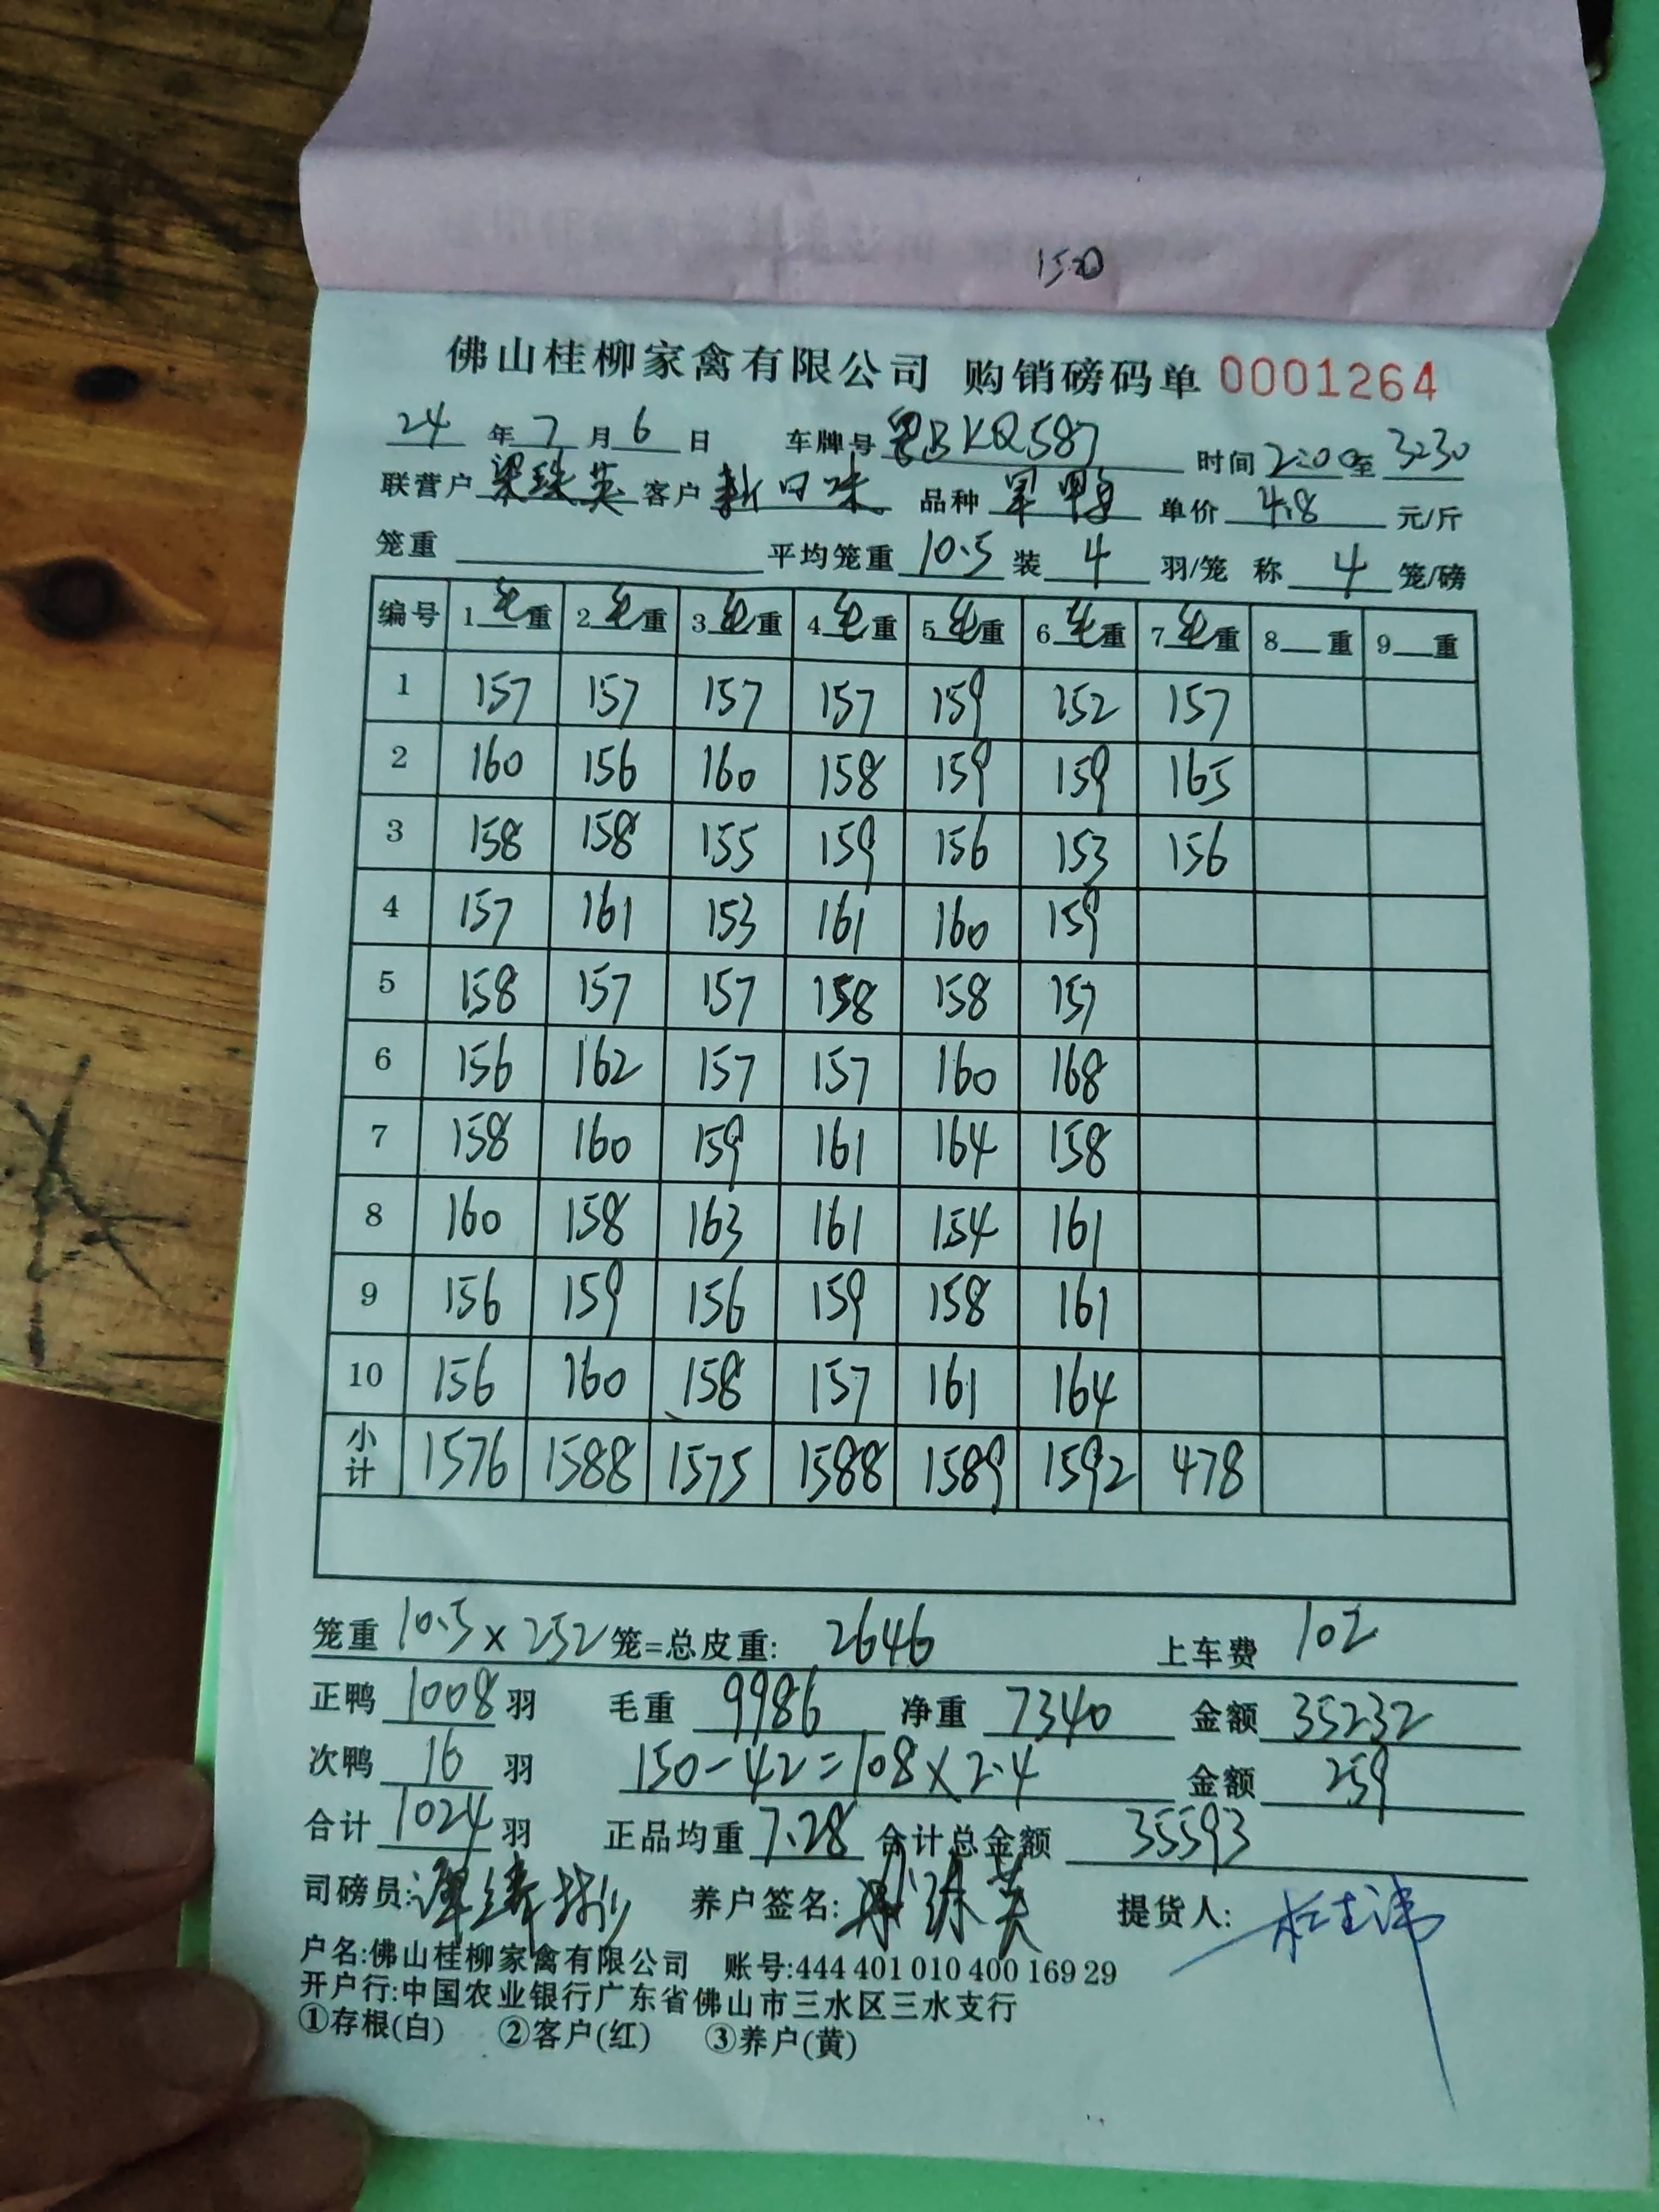 1520
佛山桂柳家禽有限公司 购销磅码单 0001264
24年7月6日 车牌号 粤BKQ587 时间 2:00至3:30
联营户 梁珠英 客户 新口味 品种 旱鸭 单价 4.8 元/斤
笼重 平均笼重 10.5 装 4 羽/笼 称 4 笼/磅
编号 1毛重 2毛重 3毛重 4毛重 5毛重 6毛重 7毛重 8__重 9__重
1 157 157 157 157 159 152 157
2 160 156 160 158 159 159 165
3 158 158 155 159 156 153 156
4 157 161 153 161 160 159
5 158 157 157 158 158 157
6 156 162 157 157 160 168
7 158 160 159 161 164 158
8 160 158 163 161 154 161
9 156 159 156 159 158 161
10 156 160 158 157 161 164
小计 1576 1588 1575 1588 1589 1592 478
笼重 10.5×252笼=总皮重: 2646 上车费 102
正鸭 1008 羽 毛重 9986 净重 7340 金额 35232
次鸭 16 羽 150-42=108×2.4 金额 259
合计 1024 羽 正品均重 7.28 合计总金额 35593
司磅员: 养户签名: 提货人:
户名:佛山桂柳家禽有限公司 账号:444 401 010 400 169 29
开户行:中国农业银行广东省佛山市三水区三水支行
①存根(白) ②客户(红) ③养户(黄)